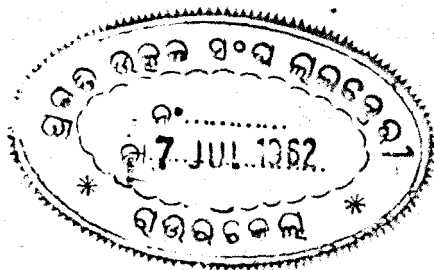 ପ୍ରଜ୍ଞା ଉତ୍କଳ ସଂଘ ଲାଇବ୍ରେରୀ
ନଂ............
ତା 7 JUL 1962
ରାଉରକେଲା